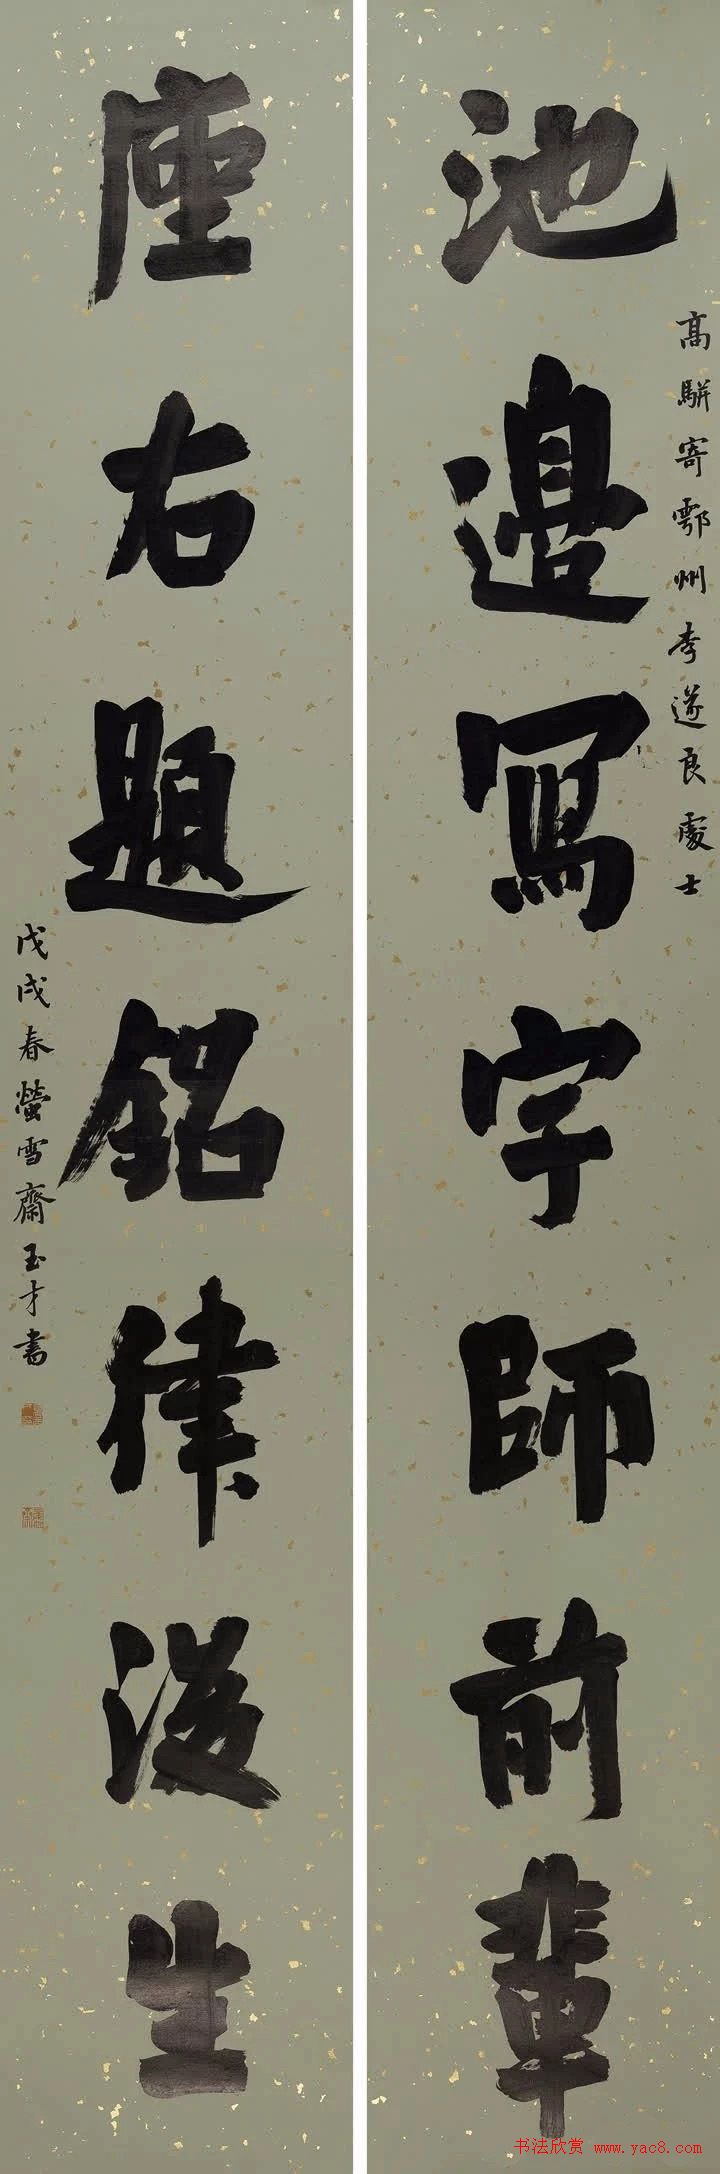 高駢寄鄂州李遂良處士
池邊寫字師前輩
座右題銘律後生
戊戌春螢雪齋玉才書
书法欣赏 www.yac8.com